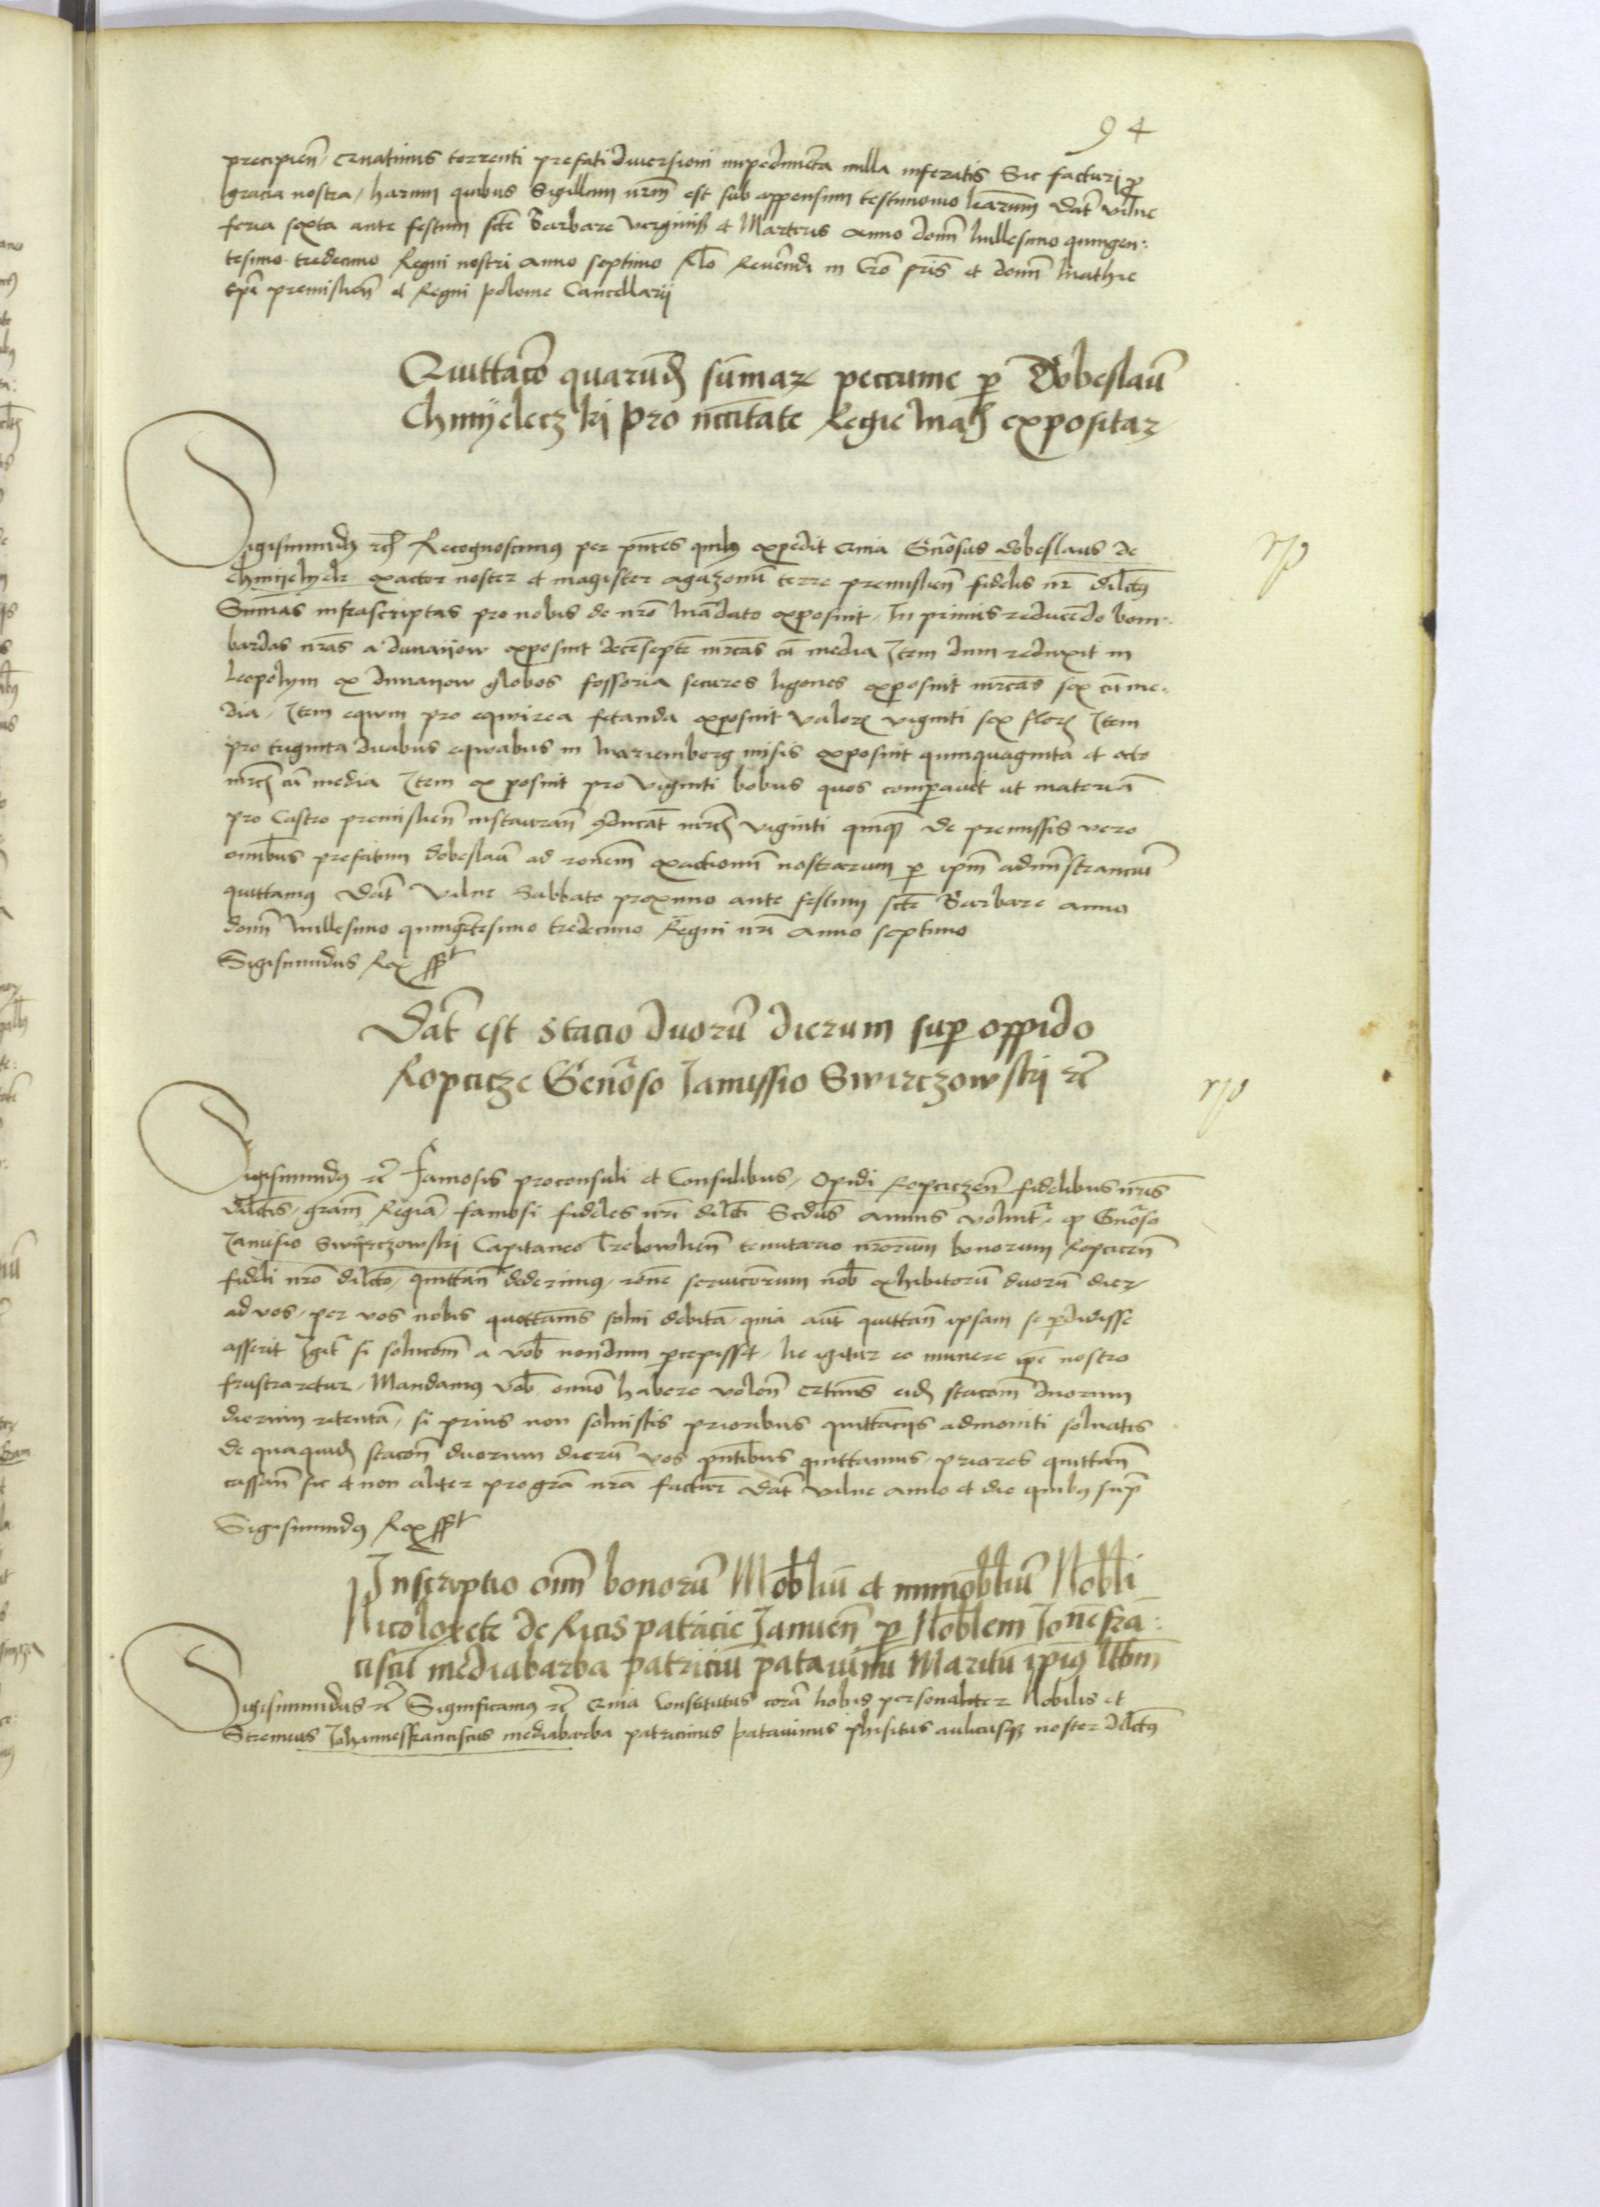 94
precipien̄ Quatinus torrenti prefati diuersioni impedimenta nulla inferatis Sic facturi p̄
gracia nostra, harum quibus Sigillum nr̄m est sub appensum testimonio l̄rarum Dat̄ vilne
feria sexta ante festum sct̄e Barbare virginis et Marteris Anno domī Millesimo quingen:
tesimo tredecimo Regni nostri Anno septimo Rel̄o Reuerendi in Cr̄o pr̄is et domī Mathie
Ep̄i premislien̄ et Regni polonie Cancellarij
Quittac̄o quarūd̄ sūmar̄ peccunie p̄ Dobeslaū
Chmijeleczkij pro nēccitate Regie Mat̄ expositar̄
Sigismundꝰ etc̄ Recognoscimus per pn̄tes quibꝰ expedit Quia Gn̄osus dobeslaus de
Chmijelnijk exactor noster et magister agazonū terre premislien̄ fidelis nr̄ dilect̄ꝰ
Sūmas infrascriptas pro nobis de nr̄o Mādato exposuit, In primis reducēdo bom-
bardas nr̄as a dunaijow exposuit decēseptē mr̄cas cū media Item dum reduxit in
Leopolym ex dunaijow globos fossoria secures ligones exposuit mr̄cas sex cū me-
dia, Item equm pro equirea fetanda exposuit valorē viginti sex florē Item
pro triginta duabus equabus in Mariemborg misis exposuit quinquaginta et octo
mrc̄ cū media Item exposuit pro viginti bobus quos comparauit ut materiā
pro Castro premislien̄ instauran̄ ꝯducat̄ mrc̄ viginti quīqꝫ De premissis vero
omībus prefatum dobeslaū ad rōnem exactionū nostrarum p̄ ipm̄ administrancium̄
quittamus Dat̄ Vilne Sabbato proximo ante festum sct̄e Barbare anno
domī Millesimo quingētesimo tredecimo Regni nr̄i anno septimo
Sigismundus Rex sst
Dat̄ est stacio duorū dierum sup̄ oppido
Ropczicze Gen̄oso Janussio Swirczowskij etc̄
Sigismundꝰ etc̄ Famosis proconsuli et Consulibus, Opidi Ropcziczen̄ fidelibus nr̄is
dilect̄is, gram̄ Regiā, famosi fideles nr̄i dilect̄i
Janusio Swijrczowskij Capitaneo Trebowlien̄ tenutario nr̄orum bonorum Ropcicen̄
fideli nr̄o dilect̄o, quittan̄ dederimus, rōne seruiciorum nob̄ exhibitorū duorū dier̄
ad vos, per vos nobis quottannis solui debitā, quia aut̄ quittan̄ ipsam se ꝑdidisse
asserit Igit̄ si soluc̄om a vob̄ nondum ꝑcepisset, Ne igitur eo munere ip̄e nostro
frustraretur, Mandamus vob̄ omīo habere volen̄ eid̄ stac̄om duorum
dierum retentā, si prius non soluistis prioribus quittanciis admoniti soluatis
De quaquid̄ stac̄om duorum dierū vos pn̄tibus quittamus, priores quittan̄
cassan̄ sic et non aliter pro gr̄a nr̄a factur̄ Dat̄ vilne anno et die quibꝰ supr̄
Sigismundꝰ Rex sst
Inscriptio om̄ bonorū Mobliū et immobliū Nobli
Nicoloxete de Ricis patricie Januen̄ p̄ Noblem Jōnēfrā:
ciscū mediabarba patriciū patauinū Maritū ipiꝰ
Sigismundus etc̄ Significamus etc̄ Quia Constitutus corā Nobis personaliter Nobilis et
Strenuus Johannesfranciscus mediabarba patricius patauinus phisicus aulicusqꝫ noster dilect̄ꝰ